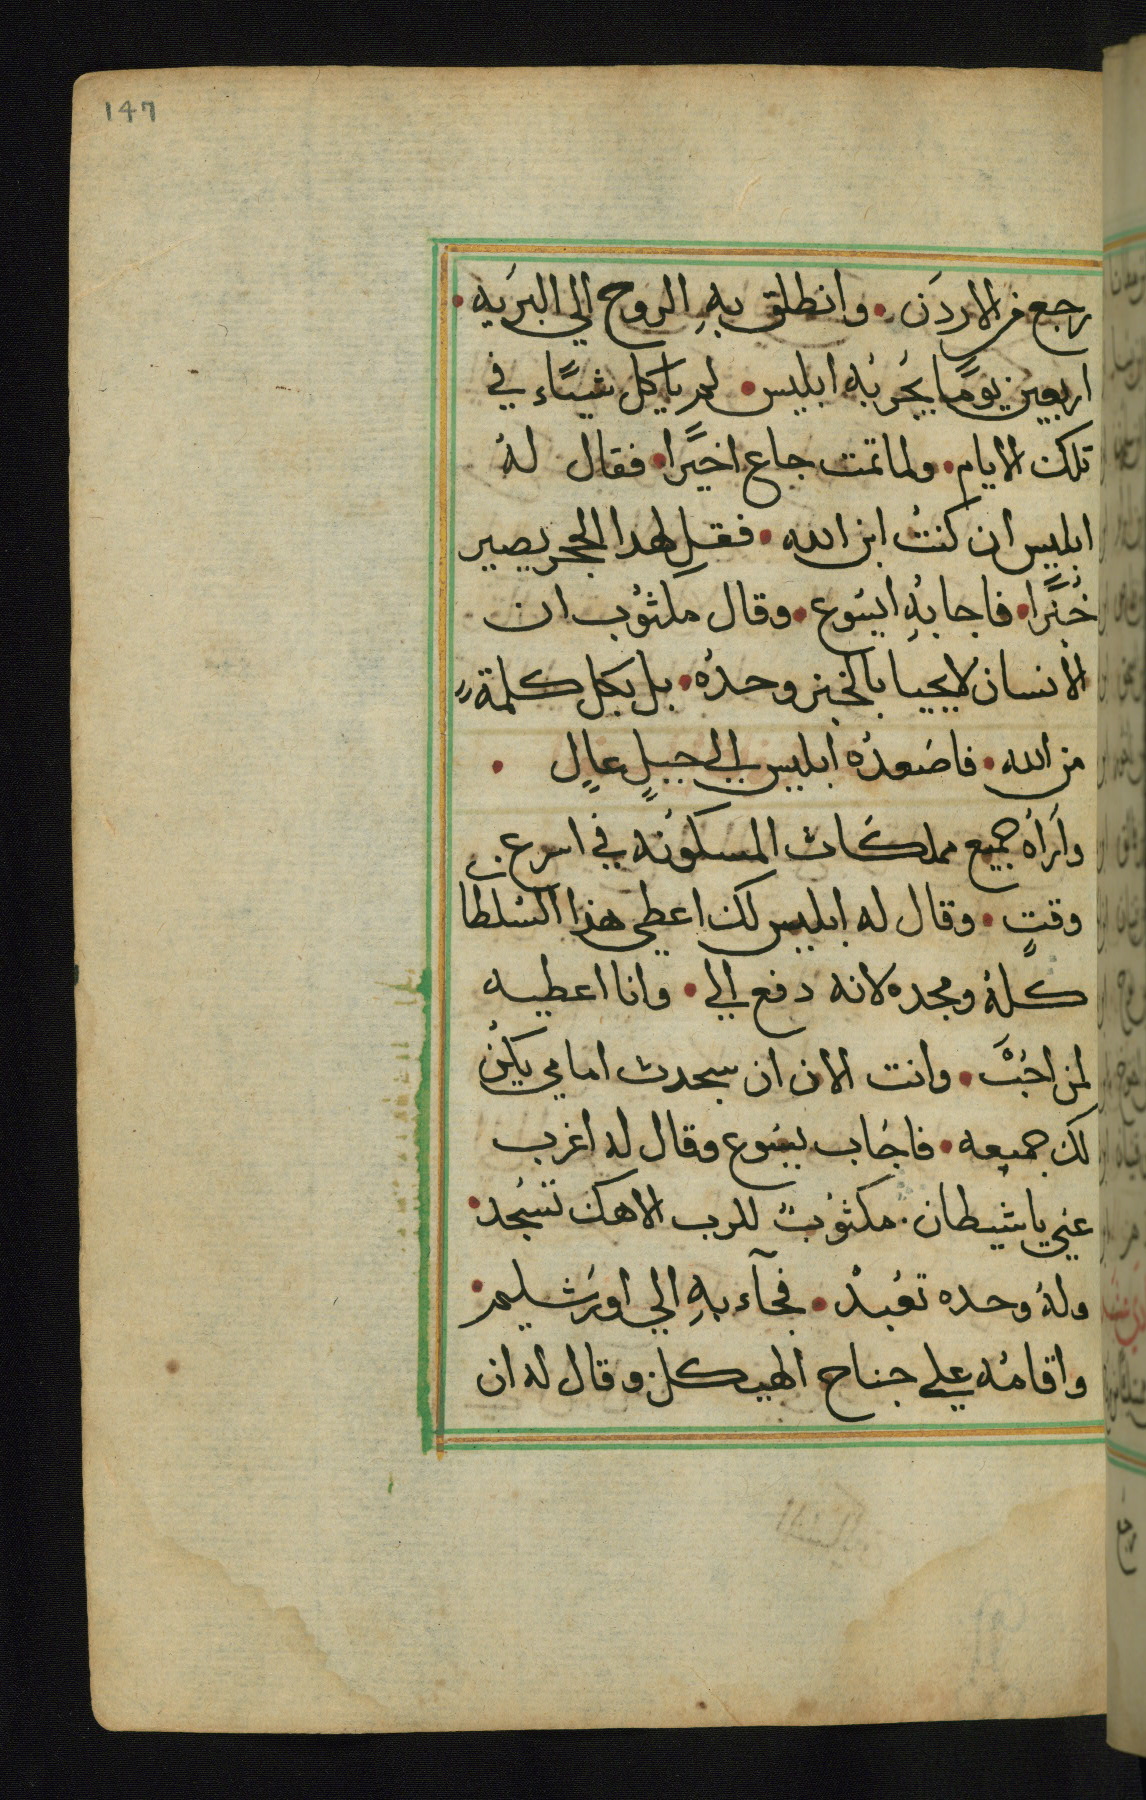 147
رجع من الاردَن • وانطلق بهِ الروح الي البرَيه •
اربعين يومًا يجُربُه ابليس • لم ياكل شيًاء في
تلك الايام • ولما تمت جاع اخيًرا • فقال لهُ
ابليس ان كنتُ ابن الله • فقل لهدا الحجر يصير
خُبزًا • فاجابهِ ايسَوع • وقال مكثوُب ان
الانسان لايحيا بالخبز وحدُه • بل بكل كلمة
من الله • فاصَعدُه ابليس الي جبلٍ عالٍ •
وآرَاه جميع مملكَات المسكونُه في اسرع
وقتٍ • وقال له ابليس لك اعطي هذا السُلطا
كلهُ ومجده لانه دفع الي • وانا اعطيه
لمن احُبَّ • وانت الان ان سجدت امامي يكنُ
لك جميعه • فاجُاب يسَوع وقال له اغرب
عني ياشيطان . مكثوُبٌ للرب الاهك تسَجد •
ولهُ وحده تعبُدْ • فجآء بهِ الي اورَشليم •
واقامُه علي جناح الهيكل . وقال له ان